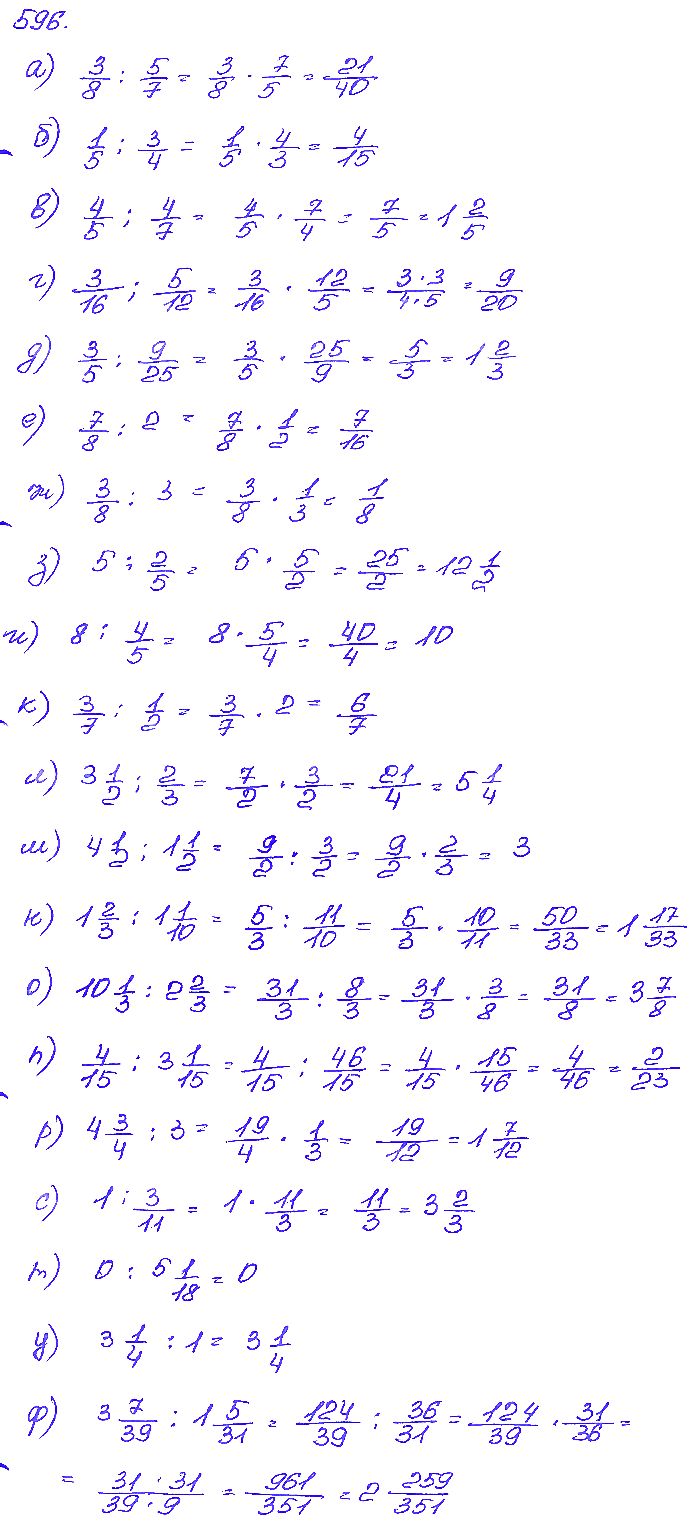 596.
а) 3/8 : 5/7 = 3/8 · 7/5 = 21/40
б) 1/5 : 3/4 = 1/5 · 4/3 = 4/15
в) 4/5 : 4/7 = 4/5 · 7/4 = 7/5 = 1 2/5
г) 3/16 : 5/12 = 3/16 · 12/5 = 3·3/4·5 = 9/20
д) 3/5 : 9/25 = 3/5 · 25/9 = 5/3 = 1 2/3
е) 7/8 : 2 = 7/8 · 1/2 = 7/16
ж) 3/8 : 3 = 3/8 · 1/3 = 1/8
з) 5 : 2/5 = 5 · 5/2 = 25/2 = 12 1/2
и) 8 : 4/5 = 8 · 5/4 = 40/4 = 10
к) 3/7 : 1/2 = 3/7 · 2 = 6/7
л) 3 1/2 : 2/3 = 7/2 · 3/2 = 21/4 = 5 1/4
м) 4 1/2 : 1 1/2 = 9/2 : 3/2 = 9/2 · 2/3 = 3
н) 1 2/3 : 1 1/10 = 5/3 : 11/10 = 5/3 · 10/11 = 50/33 = 1 17/33
о) 10 1/3 : 2 2/3 = 31/3 : 8/3 = 31/3 · 3/8 = 31/8 = 3 7/8
п) 4/15 : 3 1/15 = 4/15 : 46/15 = 4/15 · 15/46 = 4/46 = 2/23
р) 4 3/4 : 3 = 19/4 · 1/3 = 19/12 = 1 7/12
с) 1 : 3/11 = 1 · 11/3 = 11/3 = 3 2/3
т) 0 : 5 1/18 = 0
у) 3 1/4 : 1 = 3 1/4
ф) 3 7/39 : 1 5/31 = 124/39 : 36/31 = 124/39 · 31/36 =
= 31·31/39·9 = 961/351 = 2 259/351